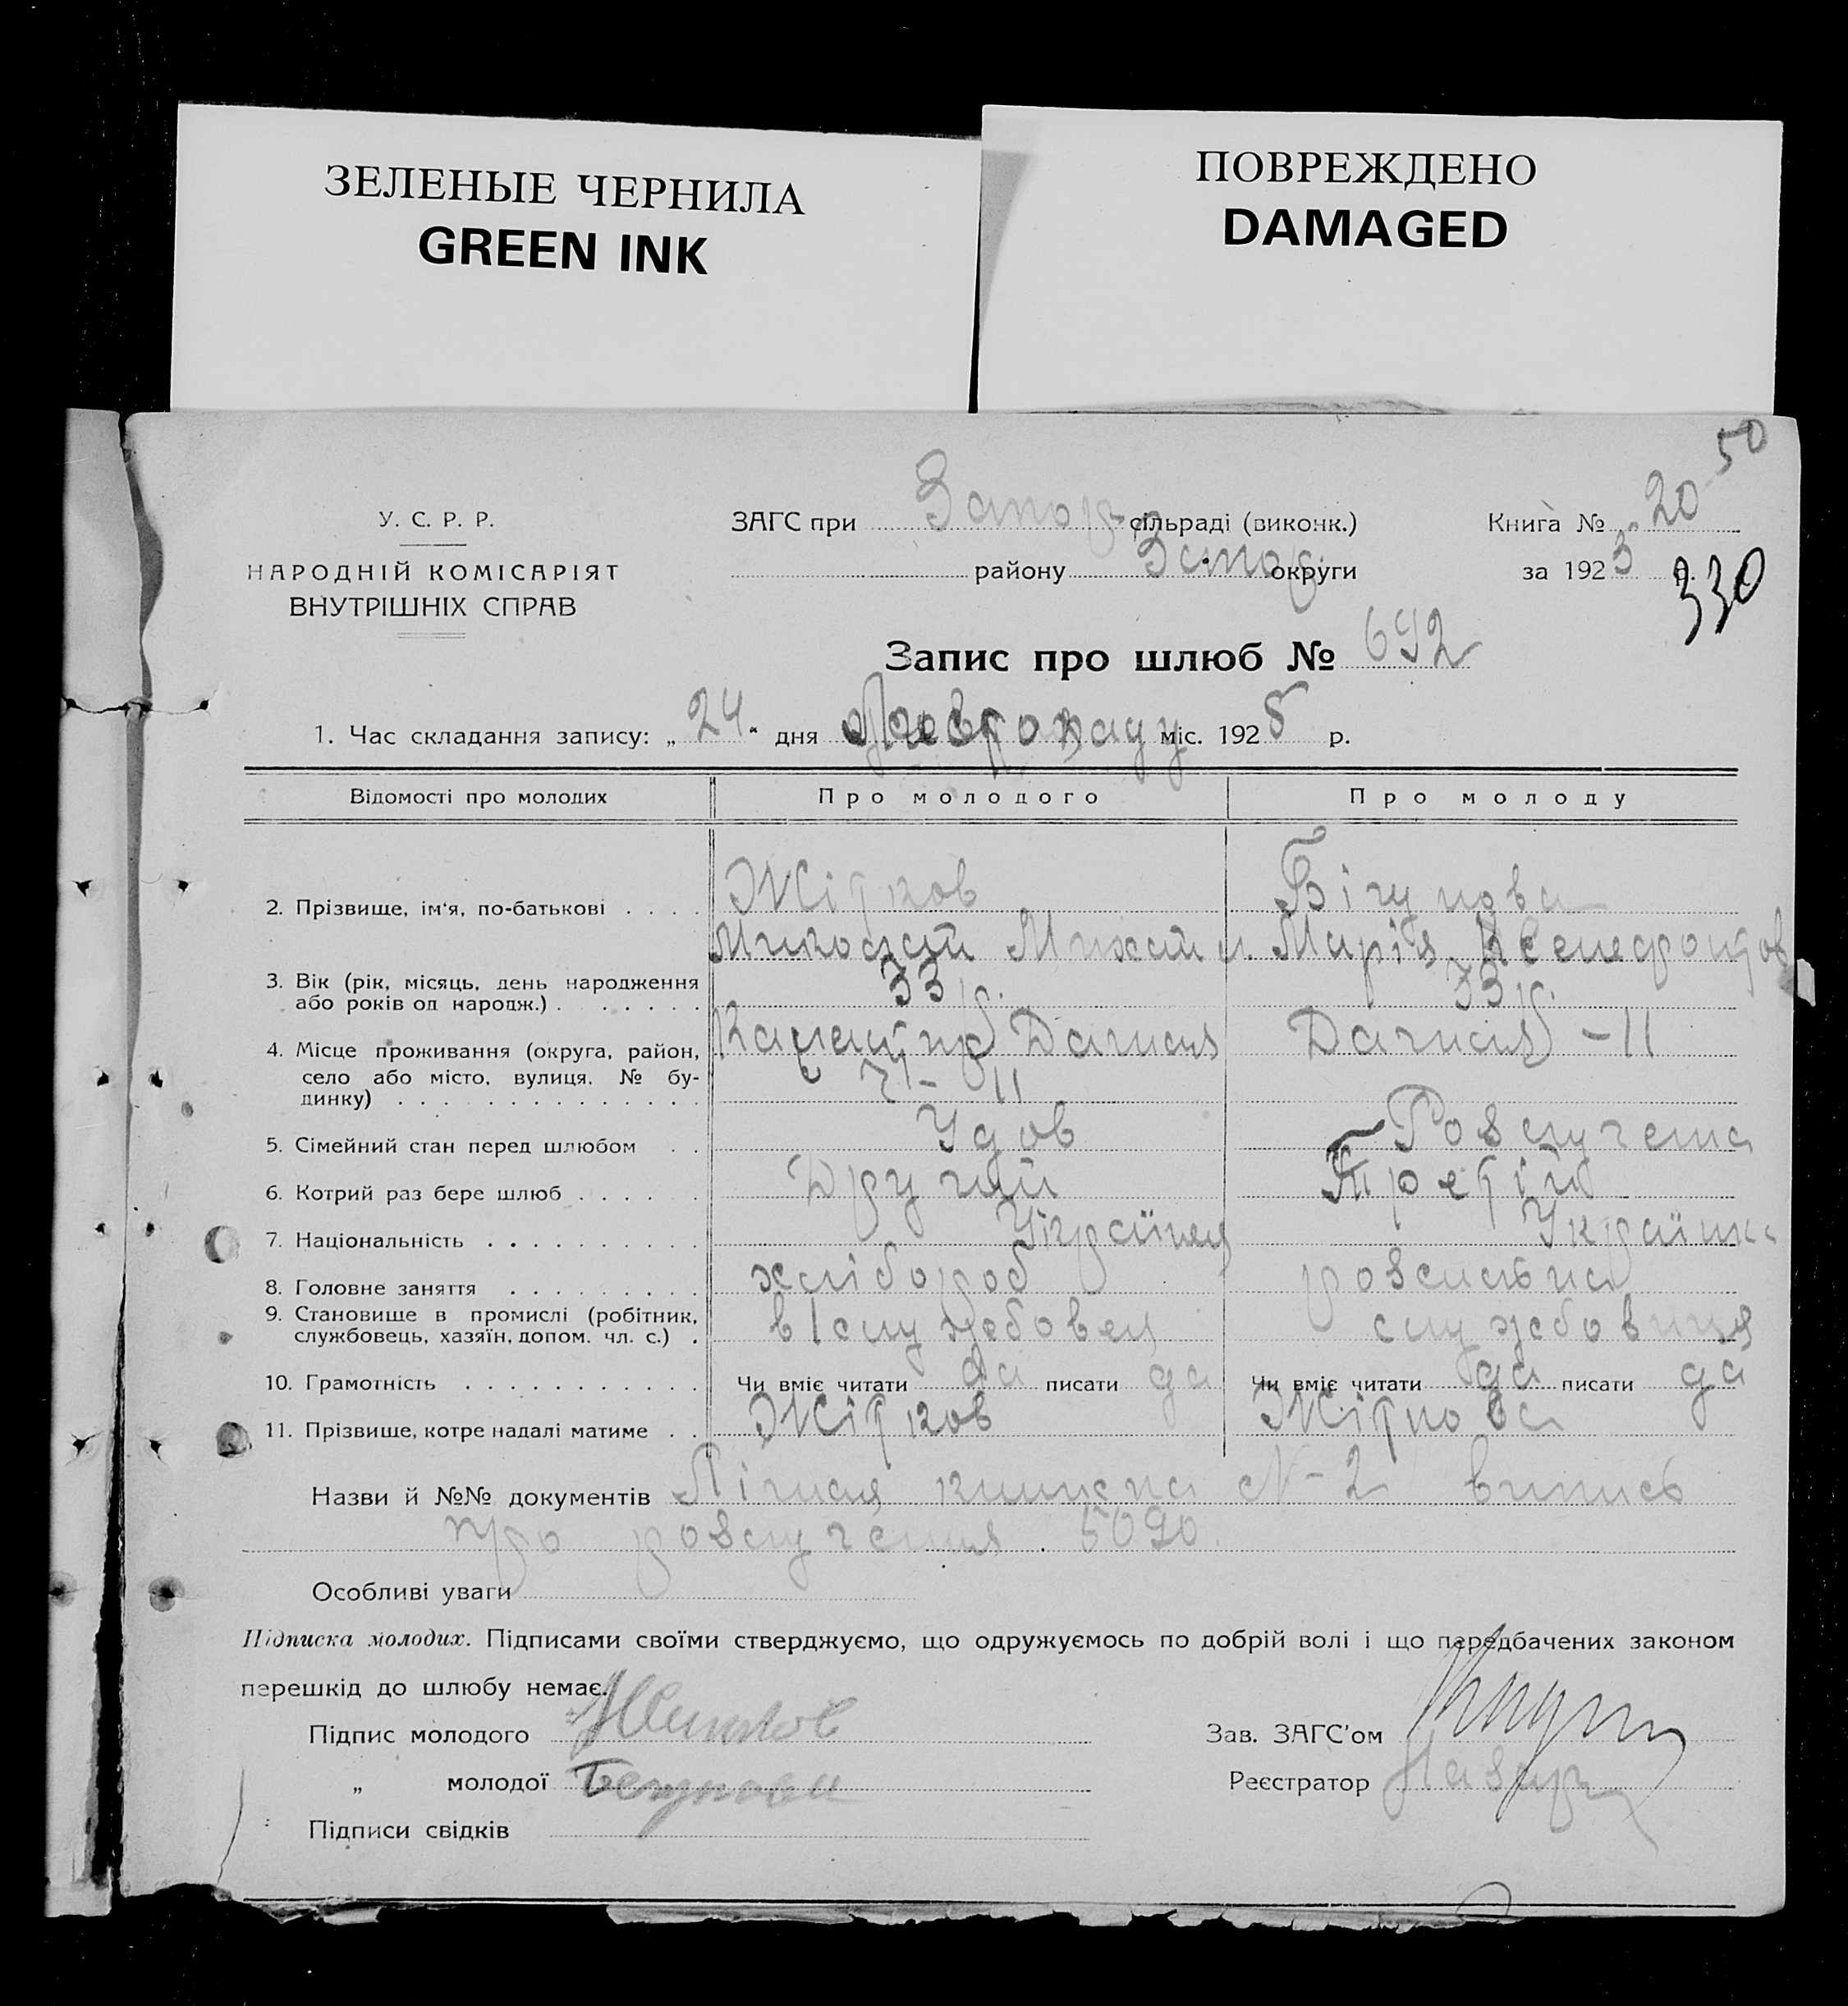 ЗЕЛЕНЫЕ ЧЕРНИЛА
GREEN INK
ПОВРЕЖДЕНО
DAMAGED
50
У. С. Р. Р.
НАРОДНІЙ КОМІСАРІЯТ
ВНУТРІШНІХ СПРАВ
ЗАГС при Запор. сільраді (виконк.)
району Запор. округи
Книга № 20
за 192 р.
330
Запис про шлюб № 692
1. Час складання запису: „24“ дня міс. 1928 р.
Відомості про молодих Про молодого Про молоду
2. Прізвище, ім'я, по-батькові . . . . Жітков Бігунова
Миколай Михайл. Марія
3. Вік (рік, місяць, день народження або років од народж.) . . . . . . 33 р. 33 р.
4. Місце проживання (округа, район, село або місто, вулиця, № будинку) . . . . . . . . . . . . . . -11 -11
5. Сімейний стан перед шлюбом . . Удов Розлучена
6. Котрий раз бере шлюб . . . . . . Другий Третій
7. Національність . . . . . . . . . . Українец Українка
8. Головне заняття . . . . . . . . . хлібороб
9. Становище в промислі (робітник, службовець, хазяїн, допом. чл. с.) . службовец службовиця
10. Грамотність . . . . . . . . . . . Чи вміє читати да писати да Чи вміє читати да писати да
11. Прізвище, котре надалі матиме . . Жітков Жіткова
Назви й №№ документів книжка №-2 випись
про розлучення. 5090.
Особливі уваги
Підписка молодих. Підписами своїми стверджуємо, що одружуємось по добрій волі і що передбачених законом
перешкід до шлюбу немає.
Підпис молодого Житков
„ молодої Бегунова
Підписи свідків
Зав. ЗАГС'ом
Реєстратор